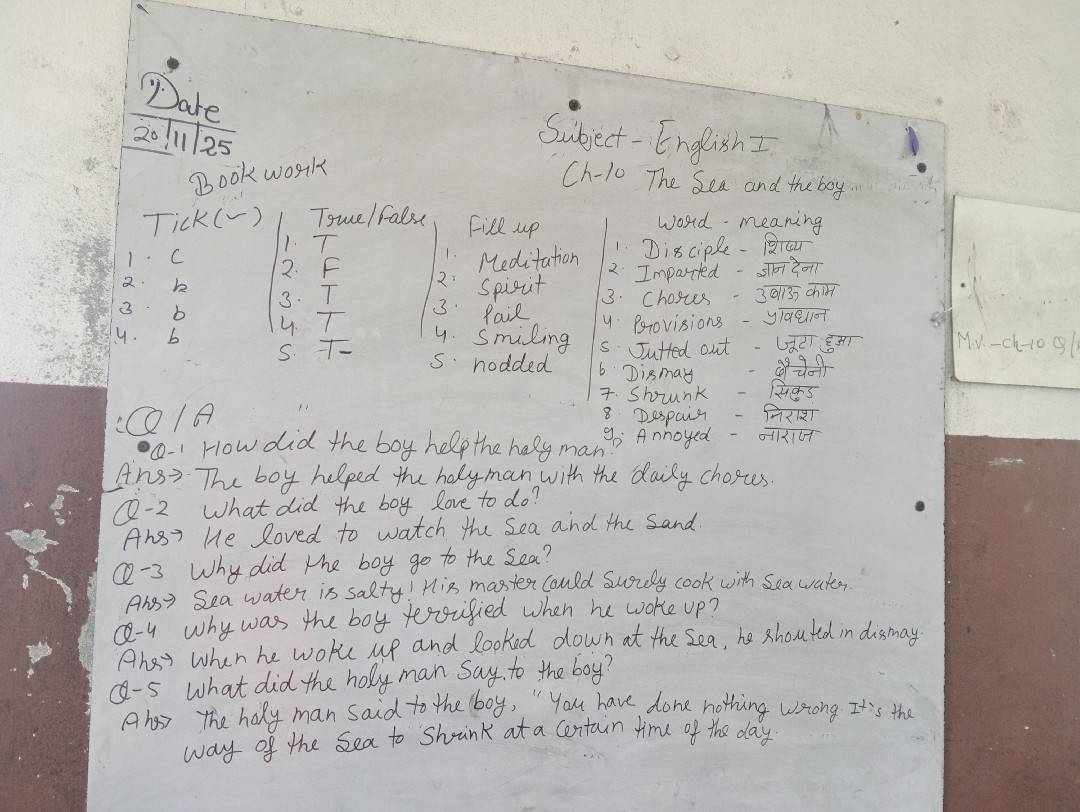 Date
20/11/25
Subject - English I
Book work
Ch-10 The Sea and the boy
Tick (✓)
1. C
2. b
3. b
4. b
True/False
1. T
2. F
3. T
4. T
5. T
Fill up
1. Meditation
2. Spirit
3. Pail
4. Smiling
5. nodded
Word - meaning
1. Disciple - शिष्य
2. Imparted - ज्ञान देना
3. Chores - उबाऊ काम
4. Provisions - प्रावधान
5. Jutted out - जूटा हुआ
6. Dismay - बैचेनी
7. Shrunk - सिकुड़
8. Despair - निराश
9. Annoyed - नाराज
Q/A
Q-1 How did the boy help the holy man?
Ans→ The boy helped the holy man with the daily chores.
Q-2 What did the boy love to do?
Ans→ He loved to watch the Sea and the Sand.
Q-3 Why did the boy go to the Sea?
Ans→ Sea water is salty! His master could surely cook with Sea water.
Q-4 Why was the boy terrified when he woke up?
Ans→ When he woke up and looked down at the Sea, he shouted in dismay.
Q-5 What did the holy man Say to the boy?
Ans→ The holy man said to the boy, "You have done nothing wrong. It's the
way of the Sea to Shrink at a certain time of the day.
M.V. - Ch-10 Q/